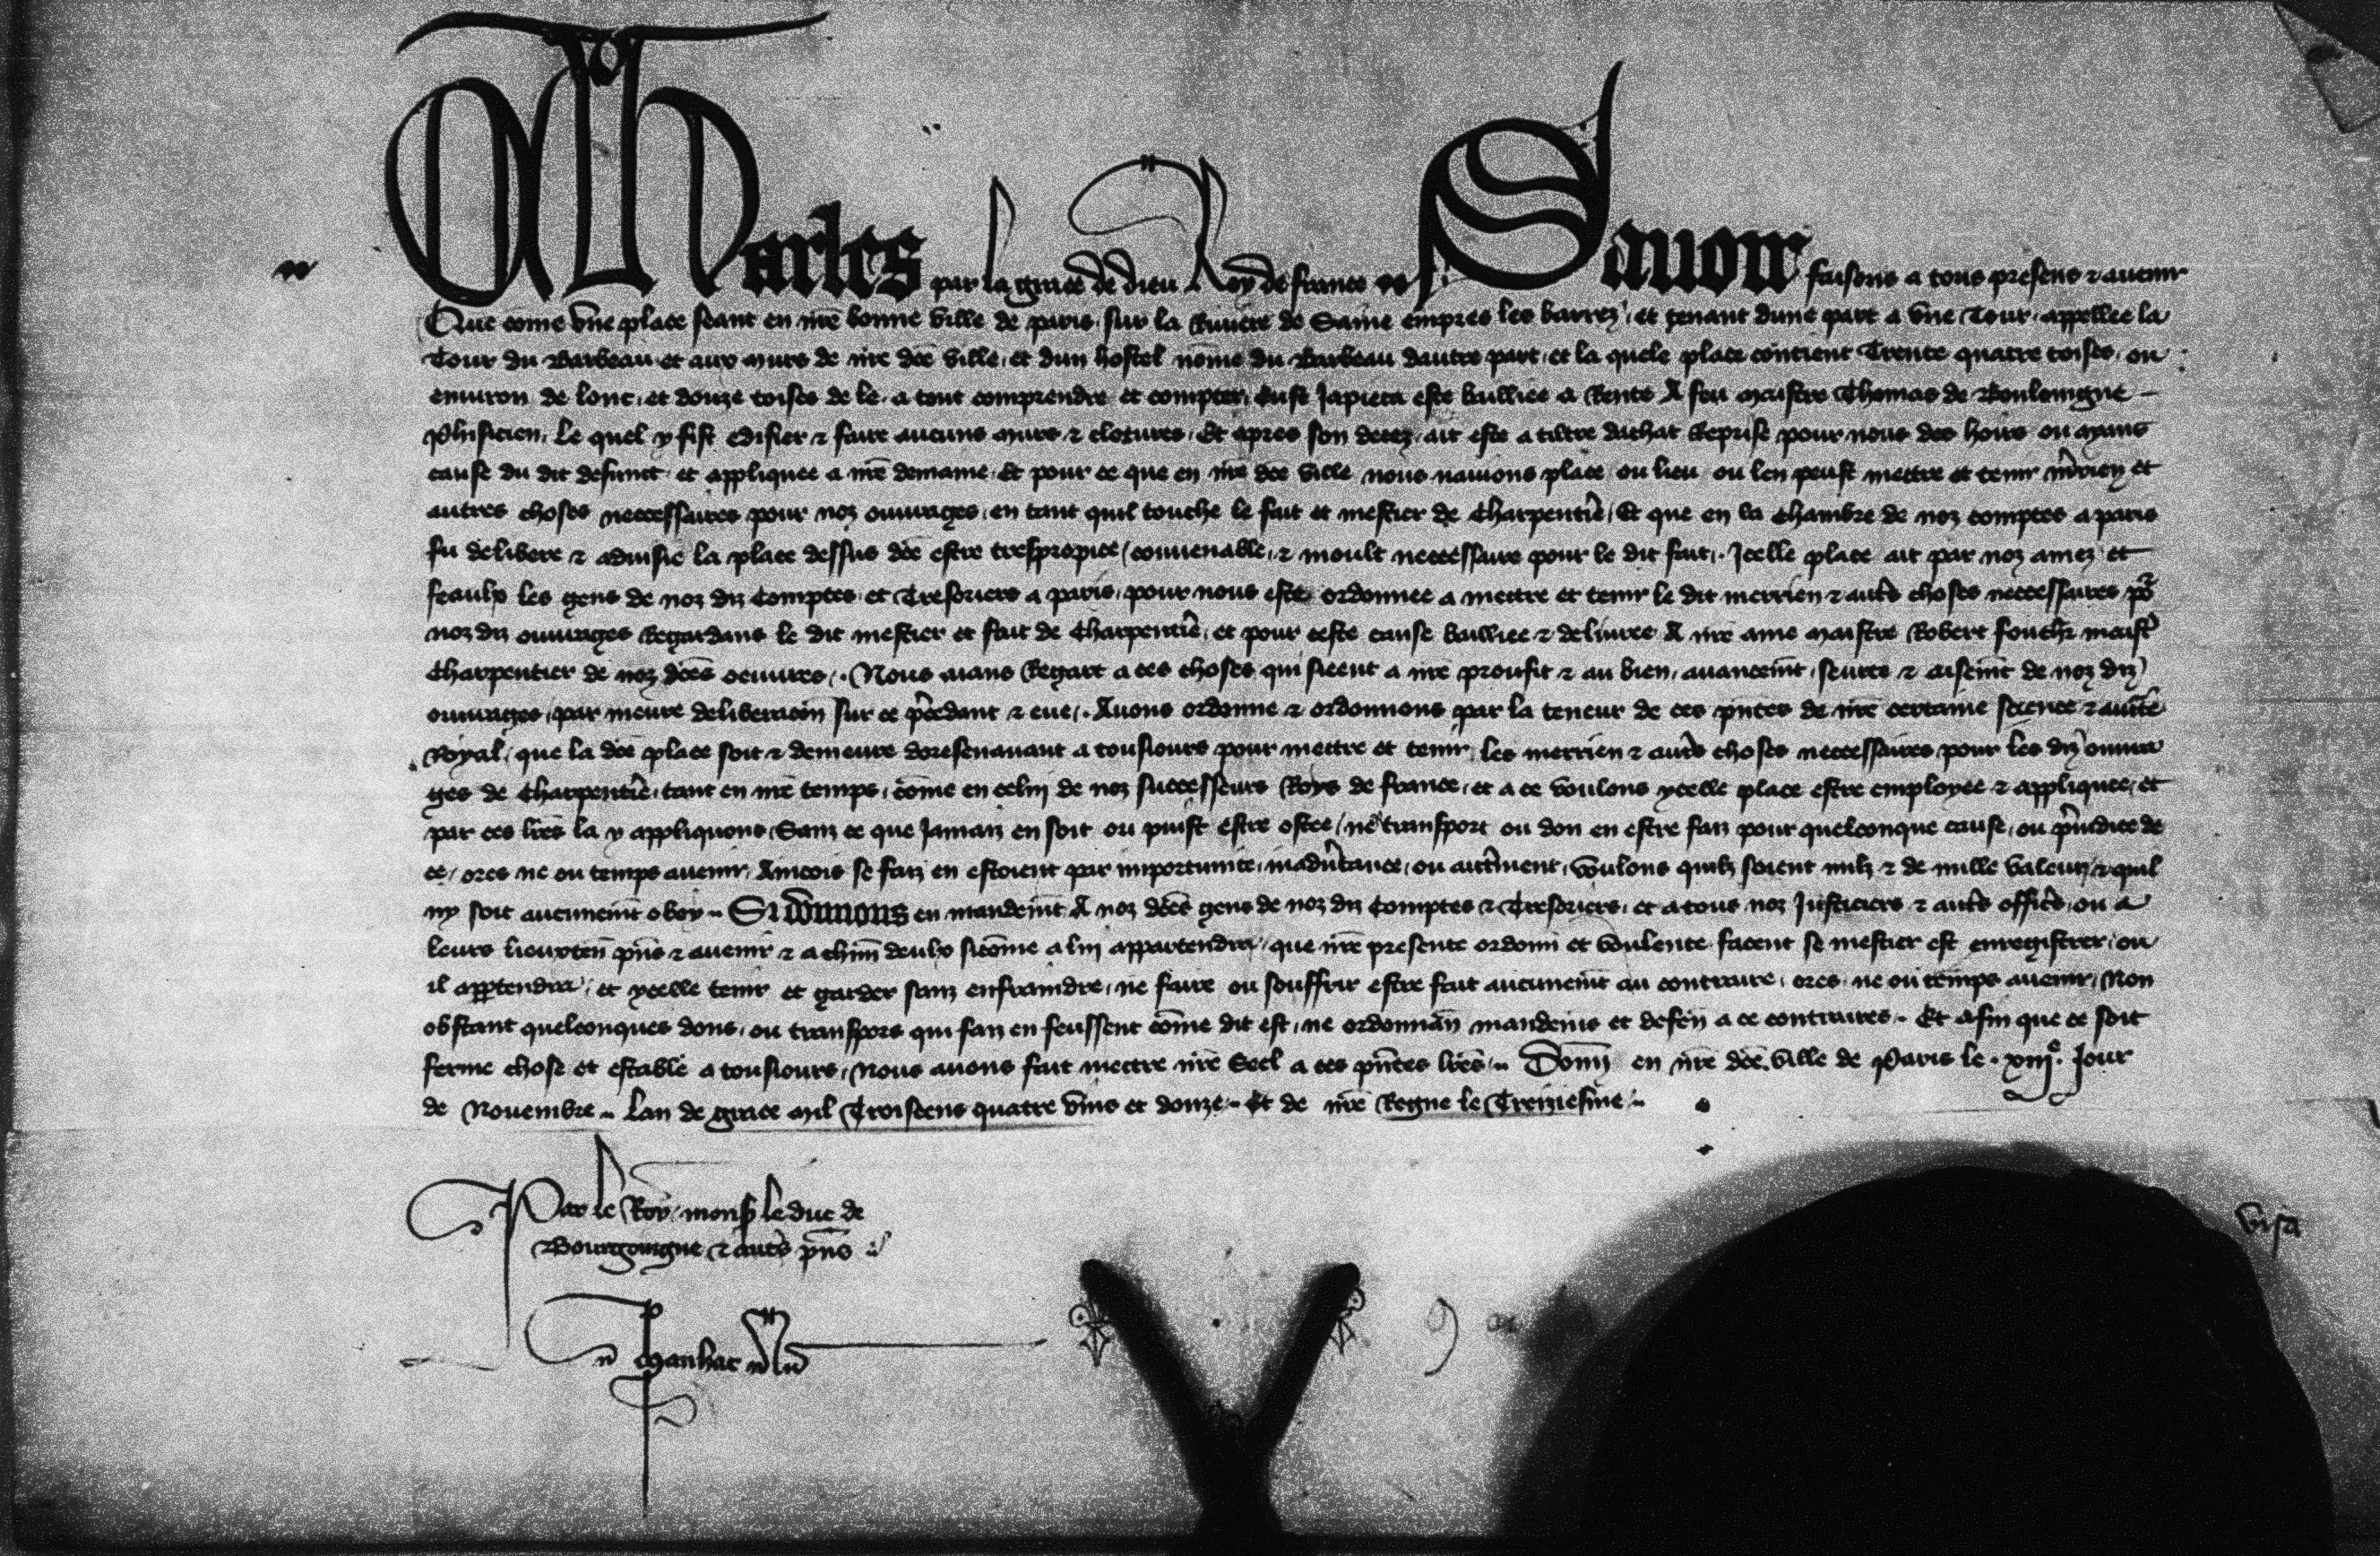 Charles par la grace de dieu Roy de france Sauoir faisons a tous presens & auenir
Que cōme vne place seant en nr̄e bonne ville de paris sur la Riuiere de Saine empres les barrez, et tenant dune part a vne Tour appellee la
Tour du Barbeau et aux murs de nr̄e dc̄e ville, et dun hostel nōme du Barbeau dautre part, et la quele place contient Trente quatre toises, ou
enuiron de lonc, et douze toises de le, a tout comprendre et compter, Eust Japieca este bailliee a Rente A feu maistre Thomas de Bouloingne
Phisicien, le quel y fist edifier & faire aucuns murs & clotures, Et apres son deces, ait este a tiltre dachat Reprise pour nous des hoirs ou ayans
cause du dit defunct, et appliquee a nr̄e demaine, Et pour ce que en nr̄e dc̄e ville nous nauions place ou lieu ou len peust mettre et tenir m̄rien et
autres choses neccessaires pour noz ouurages, en tant quil touche le fait et mestier de Charpent̄ie, Et que en la Chambre de noz comptes a paris
fu delibere & aduisie la place dessus dc̄e estre trespropice, conuenable, & moult neccessaire pour le dit fait, Icelle place ait par noz amez et
feaulx les gens de noz diz Comptes et Tresoriers a paris, pour nous este ordonnee a mettre et tenir le dit merrien & aut̄s choses neccessaires po^r
noz diz ouurages Regardans le dit mestier et fait de Charpent̄ie, et pour ceste cause bailliee & deliuree A nr̄e ame maistre Robert fouch̄r maist̄
Charpentier de noz dc̄es oeuures, Nous aians Regart a ces choses qui sieent a nr̄e proufit & au bien, auancem̄t, seurte & aisem̄t de noz diz
ouurages, par meure deliberacōn sur ce p̄cedant & eue, Auons ordonne & ordonnons par la teneur de ces pn̄tes de nr̄e certaine science & auct̄e
Royal, que la dc̄e place soit & demeure doresenauant a tousiours pour mettre et tenir les merrien & aut̄s choses neccessaires pour les diz ouura
ges de Charpent̄ie, tant en nr̄e temps, cōme en celui de noz successeurs Roys de france, et a ce voulons ycelle place estre employee & appliquee, et
par ces lr̄es la y appliquons, Sanz ce que Jamaiz en soit ou puist estre ostee, ne transport ou don en estre faiz pour quelconque cause, ou p̄iudice de
ce, ores ne ou temps auenir, Aincois se faiz en estoient par importunite, inadūtance, ou aut̄ment, voulons quilz soient nulz & de nulle valeur, & quil
ny soit aucunem̄t obey. Si dōnnons en mandem̄t A noz dc̄es gens de noz diz Comptes & Tresoriers, et a tous noz Justiciers & aut̄s offic̄s, ou a
leurs lieuxten̄ pn̄s & auenir & a chūn deulx sicōme a lui appartendra, que nr̄e presente ordonn̄ et voulente facent se mestier est enregistrer, ou
il appartendra, et ycelle tenir et garder sanz enfraindre, ne faire ou souffrir estre fait aucunem̄t au contraire, ores, ne ou temps auenir, Non
obstant quelconques dons, ou transpors qui faiz en feussent cōme dit est, ne ordonnān mandem̄s et defen̄ a ce contraires. Et afin que ce soit
ferme chose et estable a tousiours, Nous auons fait mettre nr̄e Seel a ces pn̄tes lr̄es. Donn̄ en nr̄e dc̄e ville de Paris le xiiij^e Jour
de Nouembre, lan de grace mil Troiscens quatre vins et douze. Et de nr̄e Regne le Treiziesme
Par le Roy, mons̄ le duc de
Bourgoingne & aut̄s pn̄s
visa